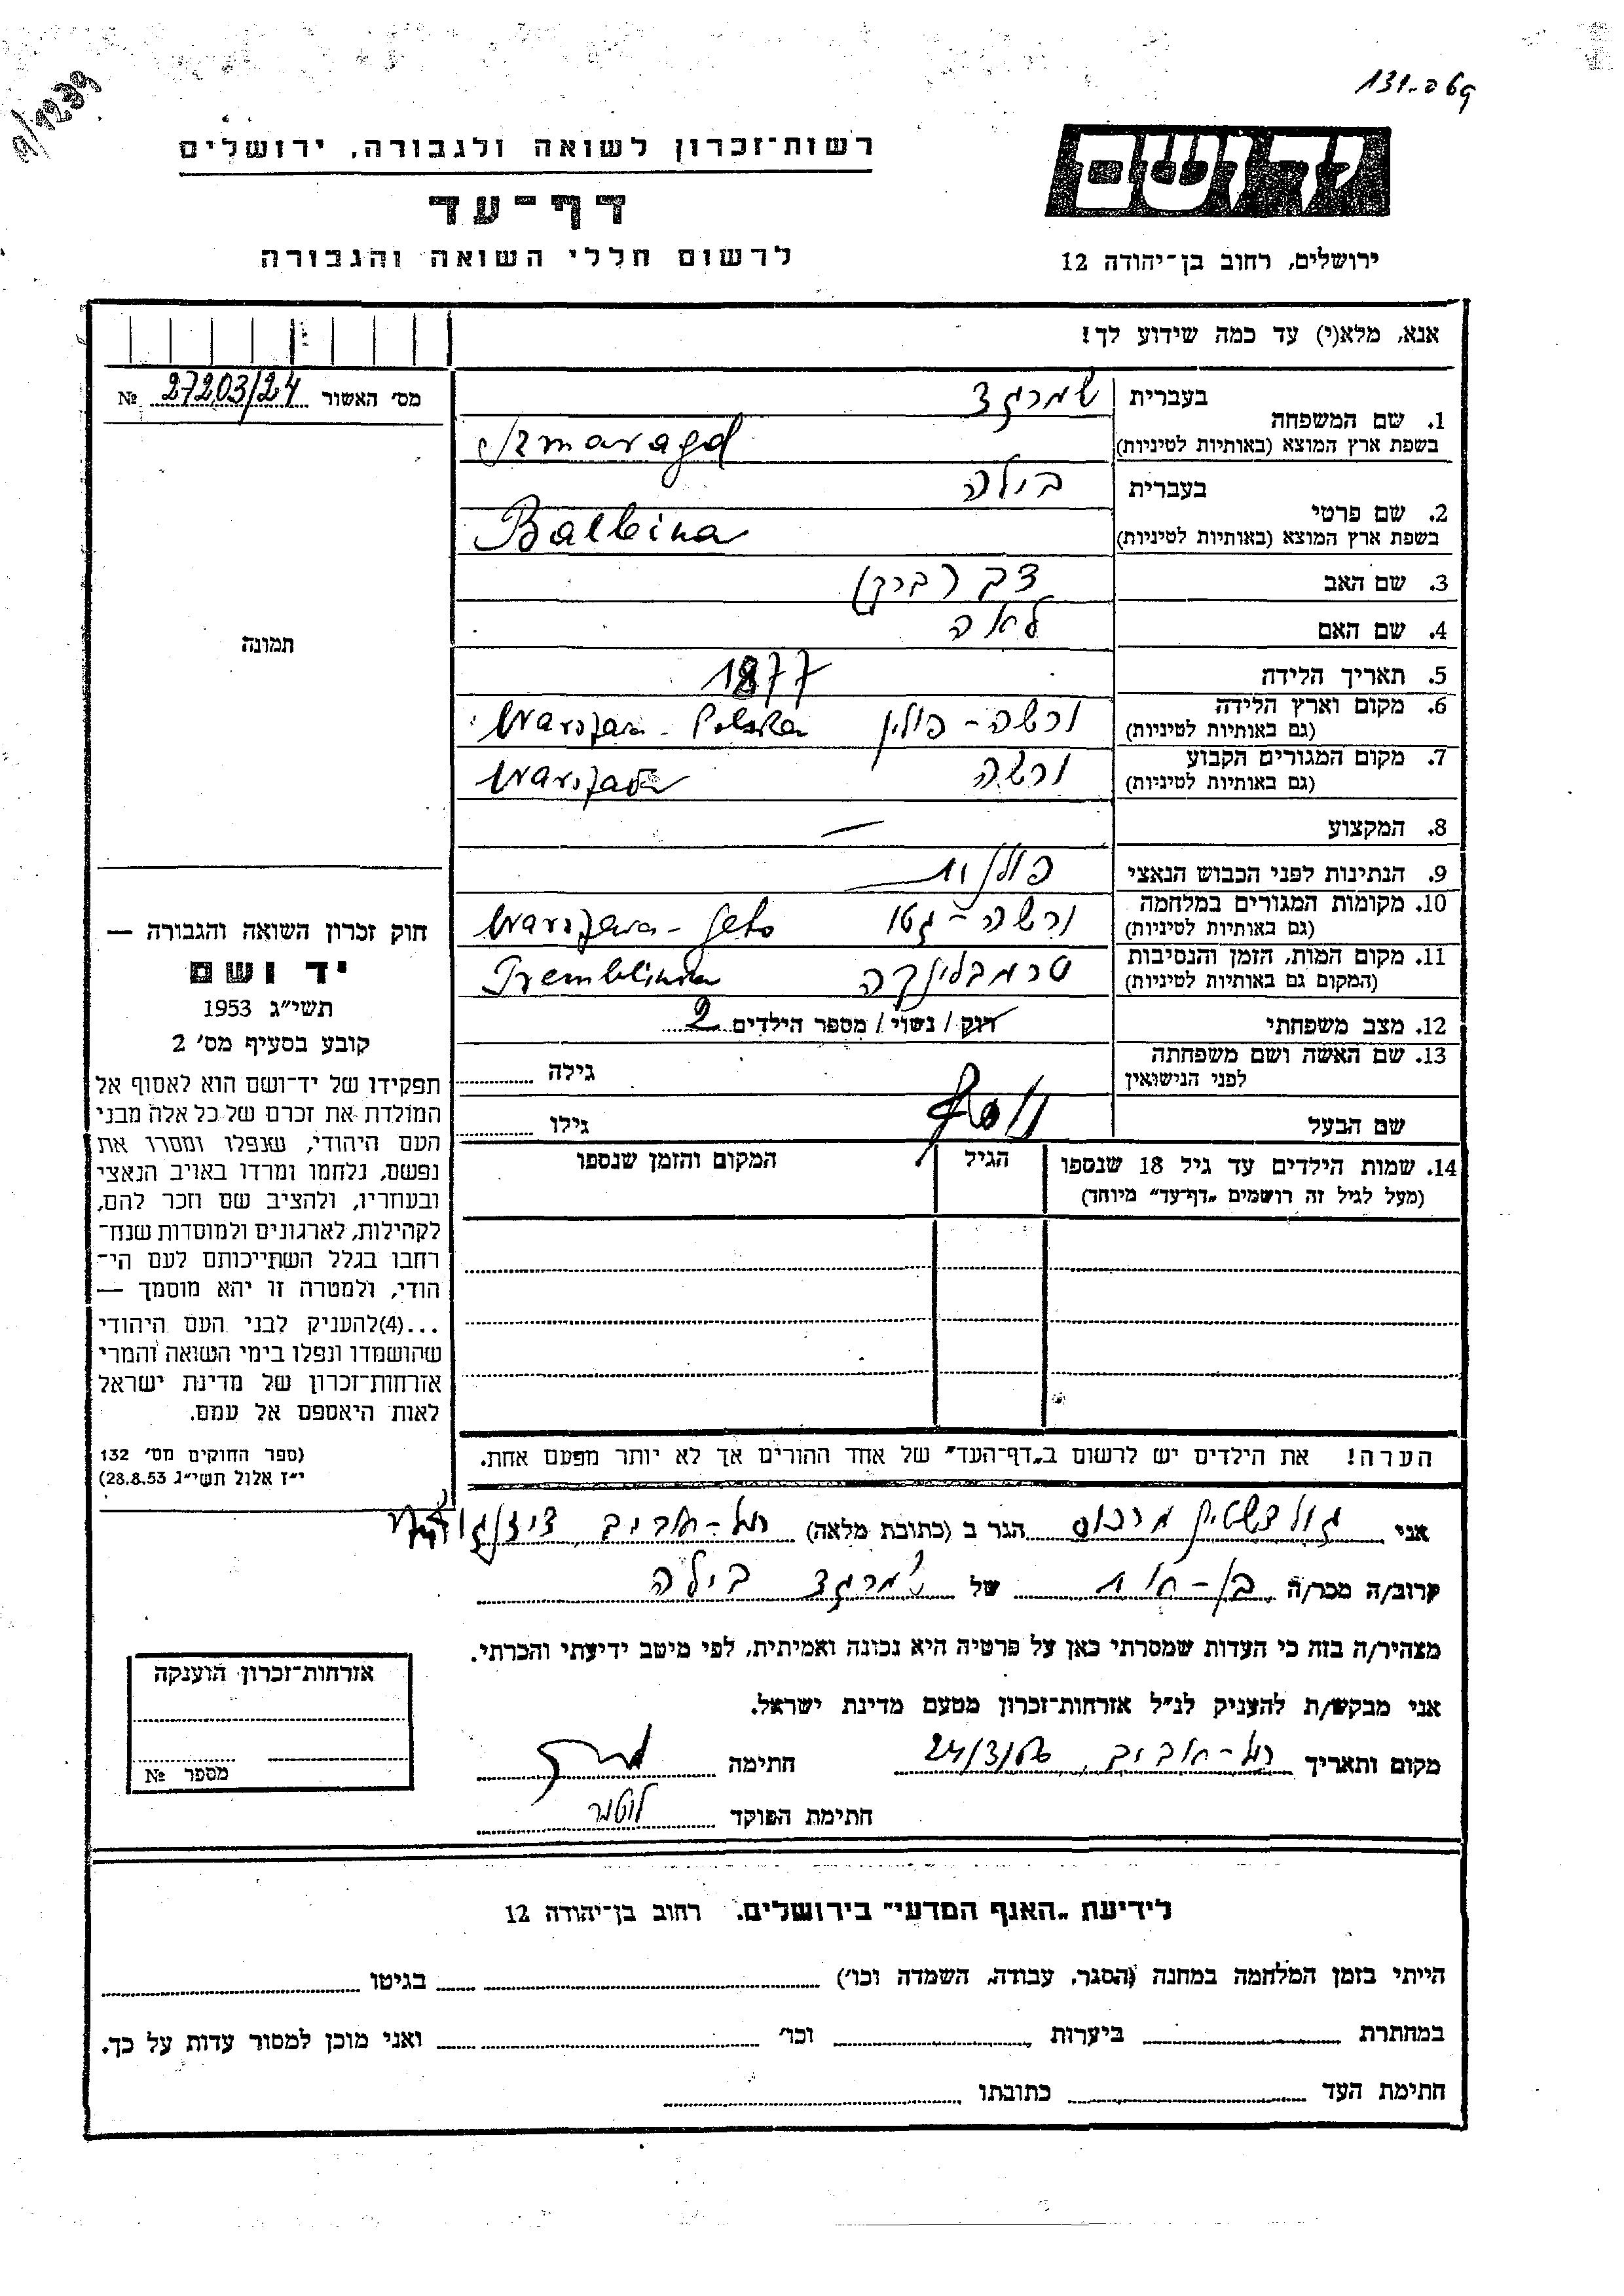 רשות־זכרון לשואה ולגבורה, ירושלים
דף־עד
לרשום חללי השואה והגבורה
יד ושם
ירושלים, רחוב בן־יהודה 12
אנא, מלא(י) עד כמה שידוע לך!
מס׳ האשור 27203/24 №
1. שם המשפחה
בעברית שמרגד
בשפת ארץ המוצא (באותיות לטיניות) Szmaragd
2. שם פרטי
בעברית בילה
בשפת ארץ המוצא (באותיות לטיניות) Balbina
3. שם האב
4. שם האם לאה
5. תאריך הלידה 1877
6. מקום וארץ הלידה ורשה - פולין
(גם באותיות לטיניות) Polska
7. מקום המגורים הקבוע ורשה
(גם באותיות לטיניות)
8. המקצוע —
9. הנתינות לפני הכבוש הנאצי פולנית
10. מקומות המגורים במלחמה ורשה - גטו
(גם באותיות לטיניות) Warszawa - Geto
11. מקום המות, הזמן והנסיבות טרמבלינקה
(המקום גם באותיות לטיניות) Tremblinka
12. מצב משפחתי רווק / נשוי / מספר הילדים 2
13. שם האשה ושם משפחתה
לפני הנישואין
גילה
שם הבעל
גילו
14. שמות הילדים עד גיל 18 שנספו
(מעל לגיל זה רושמים „דף־עד״ מיוחד)
הגיל
המקום והזמן שנספו
הערה! את הילדים יש לרשום ב„דף־העד״ של אחד ההורים אך לא יותר מפעם אחת.
תמונה
חוק זכרון השואה והגבורה —
יד ושם
תשי״ג 1953
קובע בסעיף מס׳ 2
תפקידו של יד־ושם הוא לאסוף אל
המולדת את זכרם של כל אלה מבני
העם היהודי, שנפלו ומסרו את
נפשם, נלחמו ומרדו באויב הנאצי
ובעוזריו, ולהציב שם וזכר להם,
לקהילות, לארגונים ולמוסדות שנח־
רחבו בגלל השתייכותם לעם הי־
הודי, ולמטרה זו יהא מוסמך —
...(4)להעניק לבני העם היהודי
שהושמדו ונפלו בימי השואה והמרי
אזרחות־זכרון של מדינת ישראל
לאות היאספם אל עמם.
(ספר החוקים מס׳ 132
י״ז אלול תשי״ג 28.8.53)
אני גולדשטיין מרכוס הגר ב (כתובת מלאה) תל-אביב דיזנגוף
קרוב/ה מכר/ה בן-אחות של שמרגד בילה
מצהיר/ה בזה כי העדות שמסרתי כאן על פרטיה היא נכונה ואמיתית, לפי מיטב ידיעתי והכרתי.
אני מבקש/ת להעניק לנ״ל אזרחות־זכרון מטעם מדינת ישראל.
מקום ותאריך תל-אביב, חתימה
חתימת הפוקד
אזרחות־זכרון הוענקה
מספר №
לידיעת „האגף המדעי״ בירושלים. רחוב בן־יהודה 12
הייתי בזמן המלחמה במחנה (הסגר, עבודה, השמדה וכו׳) בגיטו
במחתרת ביערות וכו׳ ואני מוכן למסור עדות על כך.
חתימת העד כתובתו